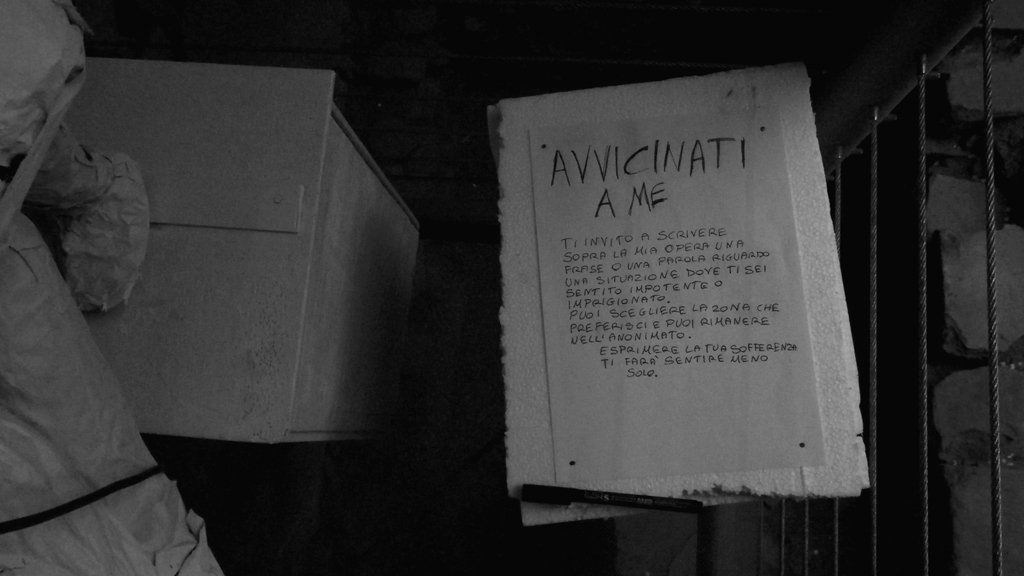 AVVICINATI
A ME
TI INVITO A SCRIVERE
SOPRA LA MIA OPERA UNA
FRASE O UNA PAROLA RIGUARDO
UNA SITUAZIONE DOVE TI SEI
SENTITO IMPOTENTE O
IMPRIGIONATO.
PUOI SCEGLIERE LA ZONA CHE
PREFERISCI E PUOI RIMANERE
NELL'ANONIMATO.
ESPRIMERE LA TUA SOFFERENZA
TI FARÀ SENTIRE MENO
SOLO.